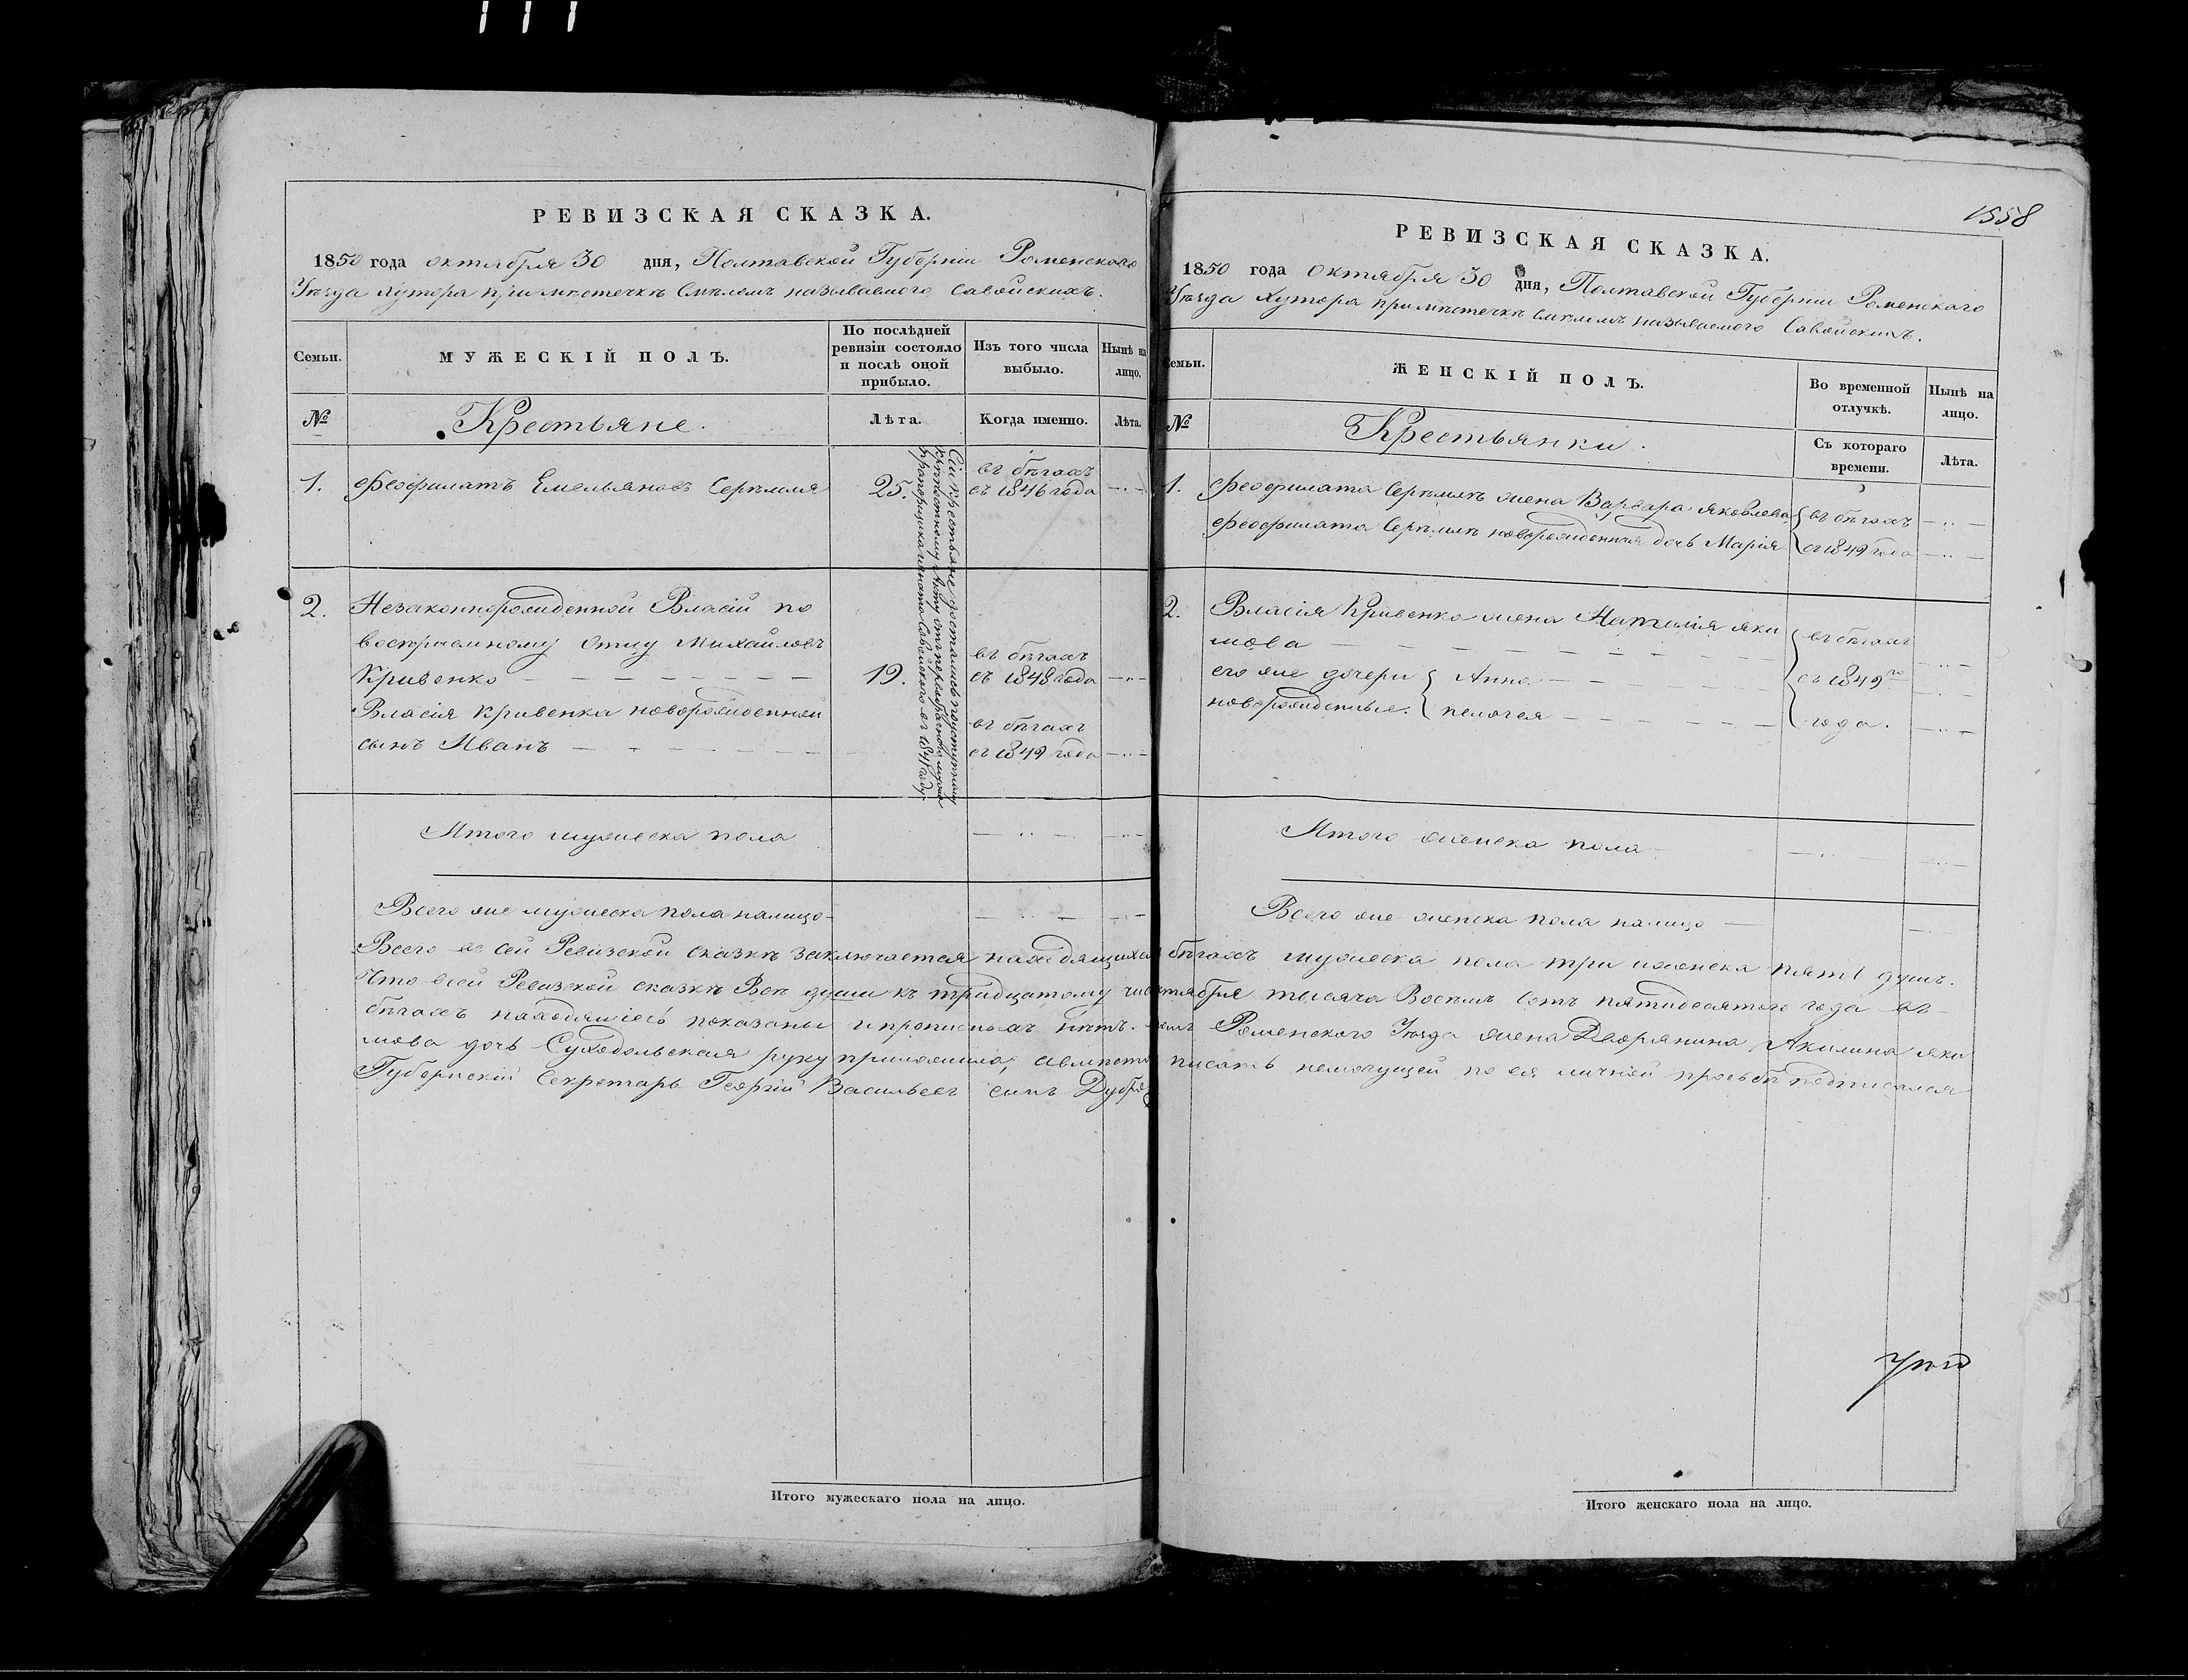 РЕВИЗСКАЯ СКАЗКА.
1850 года октября 30 дня, Полтавской Губерніи Роменского
Уѣзда Хутора при мѣстечкѣ Смѣломъ называемого Савойскихъ.
Семьи.
МУЖЕСКІЙ ПОЛЪ.
По послѣдней ревизіи состояло и послѣ оной прибыло.
Изъ того числа выбыло.
Нынѣ на лицо.
№
Крестьяне.
Лѣта.
Когда именно.
Лѣта.
1. Феофилатъ Емельяновъ Серѣмля 25. въ бѣгахъ
съ 1846 года
Сіи крестьяне достались по уступному
крѣпостному Акту отъ
въ 1841 году.
2. Незаконнорожденной Власій по
воспріемному Отцу Михайловъ
Кривенко 19. въ бѣгахъ
съ 1848 года
Власія Кривенка новорожденной
сынъ Иванъ въ бѣгахъ
съ 1849 года
Итого мужеска пола
Всего же мужеска пола налицо
1558
РЕВИЗСКАЯ СКАЗКА.
1850 года Октября 30 дня, Полтавской Губерніи Роменского
Уѣзда Хутора при мѣстечкѣ Смѣломъ называемого Савойскихъ.
Семьи.
ЖЕНСКІЙ ПОЛЪ.
Во временной отлучкѣ.
Нынѣ на лицо.
№
Крестьянки.
Съ котораго времени.
Лѣта.
1. Феофилата Серѣмлѣ жена Варвара Яковлева въ бѣгахъ
Феофилата Серѣмлѣ новорожденная дочь Марія съ 1849 года
2. Власія Кривенко жена Наталія Яки
мова въ бѣгахъ
его же дочери Анна съ 1849го
новорожденные. Пелагея года.
Итого женска пола
Всего же женска пола налицо
Всего въ сей Ревизской сказкѣ заключается находящихся бѣгахъ мужеска пола три женска пять душъ.
Что всей Ревизской сказкѣ Все души къ тридцатому октября тысяча Восемь сотъ пятидесятого года въ
бѣгахъ находящіесь показаны и прописныхъ нѣтъ. Роменского Уѣзда жена Дворянина Акилина Яки
мова дочь Суходольская руку приложила, а вмѣсто писать немогущей по ея личной просьбѣ подписался
Губернскій Секретарь Георгій Васильевъ сынъ
Итого мужескаго пола на лицо.
Итого женскаго пола на лицо.